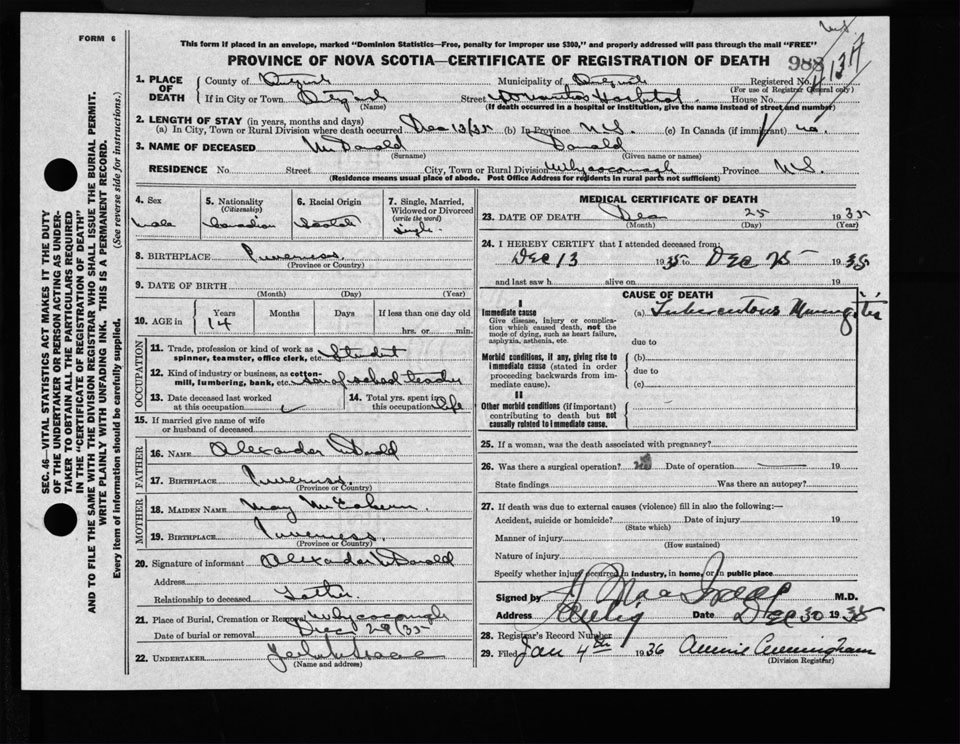 FORM 6
This form if placed in an envelope, marked "Dominion Statistics—Free, penalty for improper use $300," and properly addressed will pass through the mail "FREE"
PROVINCE OF NOVA SCOTIA—CERTIFICATE OF REGISTRATION OF DEATH
988
1. PLACE OF DEATH
County of
Municipality of
Registered No.
(For use of Registrar General only)
If in City or Town
(Name)
Street
Hospital
House No.
(If death occurred in a hospital or institution, give the name instead of street and number)
2. LENGTH OF STAY (in years, months and days)
(a) In City, Town or Rural Division where death occurred Dec 13/35 (b) In Province N.S. (c) In Canada (if immigrant) no.
3. NAME OF DECEASED McDonald Donald
(Surname) (Given name or names)
RESIDENCE No. Street City, Town or Rural Division Whycocomagh Province N.S.
(Residence means usual place of abode. Post Office Address for residents in rural parts not sufficient)
4. Sex
Male
5. Nationality
(Citizenship)
Canadian
6. Racial Origin
Scotch
7. Single, Married, Widowed or Divorced
(write the word)
Single
8. BIRTHPLACE Inverness
(Province or Country)
9. DATE OF BIRTH
(Month) (Day) (Year)
10. AGE in Years Months Days If less than one day old
14 hrs. or min.
OCCUPATION
11. Trade, profession or kind of work as spinner, teamster, office clerk, etc. Student
12. Kind of industry or business, as cotton-mill, lumbering, bank, etc. son of school teacher
13. Date deceased last worked at this occupation
14. Total yrs. spent in this occupation Life
15. If married give name of wife or husband of deceased
FATHER
16. NAME Alexander McDonald
17. BIRTHPLACE Inverness
(Province or Country)
MOTHER
18. MAIDEN NAME Mary McEachern
19. BIRTHPLACE Inverness
(Province or Country)
20. Signature of informant Alexander McDonald
Address
Relationship to deceased Father
21. Place of Burial, Cremation or Removal Whycocomagh
Date of burial or removal Dec 29/35
22. UNDERTAKER
(Name and address)
MEDICAL CERTIFICATE OF DEATH
23. DATE OF DEATH Dec 25 1935
(Month) (Day) (Year)
24. I HEREBY CERTIFY that I attended deceased from:
Dec 13 1935 to Dec 25 1935
and last saw h alive on 19
CAUSE OF DEATH
I
Immediate cause
Give disease, injury or complication which caused death, not the mode of dying, such as heart failure, asphyxia, asthenia, etc.
(a) Tuberculous Meningitis
due to
Morbid conditions, if any, giving rise to immediate cause (stated in order proceeding backwards from immediate cause).
(b)
due to
(c)
II
Other morbid conditions (if important) contributing to death but not causally related to immediate cause.
25. If a woman, was the death associated with pregnancy?
26. Was there a surgical operation? no Date of operation 19
State findings Was there an autopsy?
27. If death was due to external causes (violence) fill in also the following:—
Accident, suicide or homicide? Date of injury 19
(State which)
Manner of injury
(How sustained)
Nature of injury
Specify whether injury occurred in industry, in home, or in public place
Signed by M.D.
Address Antig Date Dec 30 1935
28. Registrar's Record Number
29. Filed Jan 4th 1936 Annie Cunningham
(Division Registrar)
SEC. 46—VITAL STATISTICS ACT MAKES IT THE DUTY
OF THE UNDERTAKER OR PERSON ACTING AS UNDER-
TAKER TO OBTAIN ALL THE PARTICULARS REQUIRED
IN THE "CERTIFICATE OF REGISTRATION OF DEATH"
AND TO FILE THE SAME WITH THE DIVISION REGISTRAR WHO SHALL ISSUE THE BURIAL PERMIT.
WRITE PLAINLY WITH UNFADING INK. THIS IS A PERMANENT RECORD.
Every item of information should be carefully supplied. (See reverse side for instructions.)